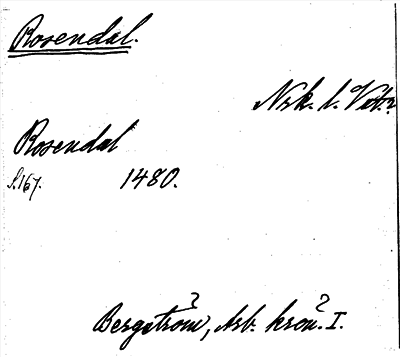 Rosendal.
Nrk. l. Vst.?
Rosendal
S. 167. 1480.
Bergström, Arb. krön. I.